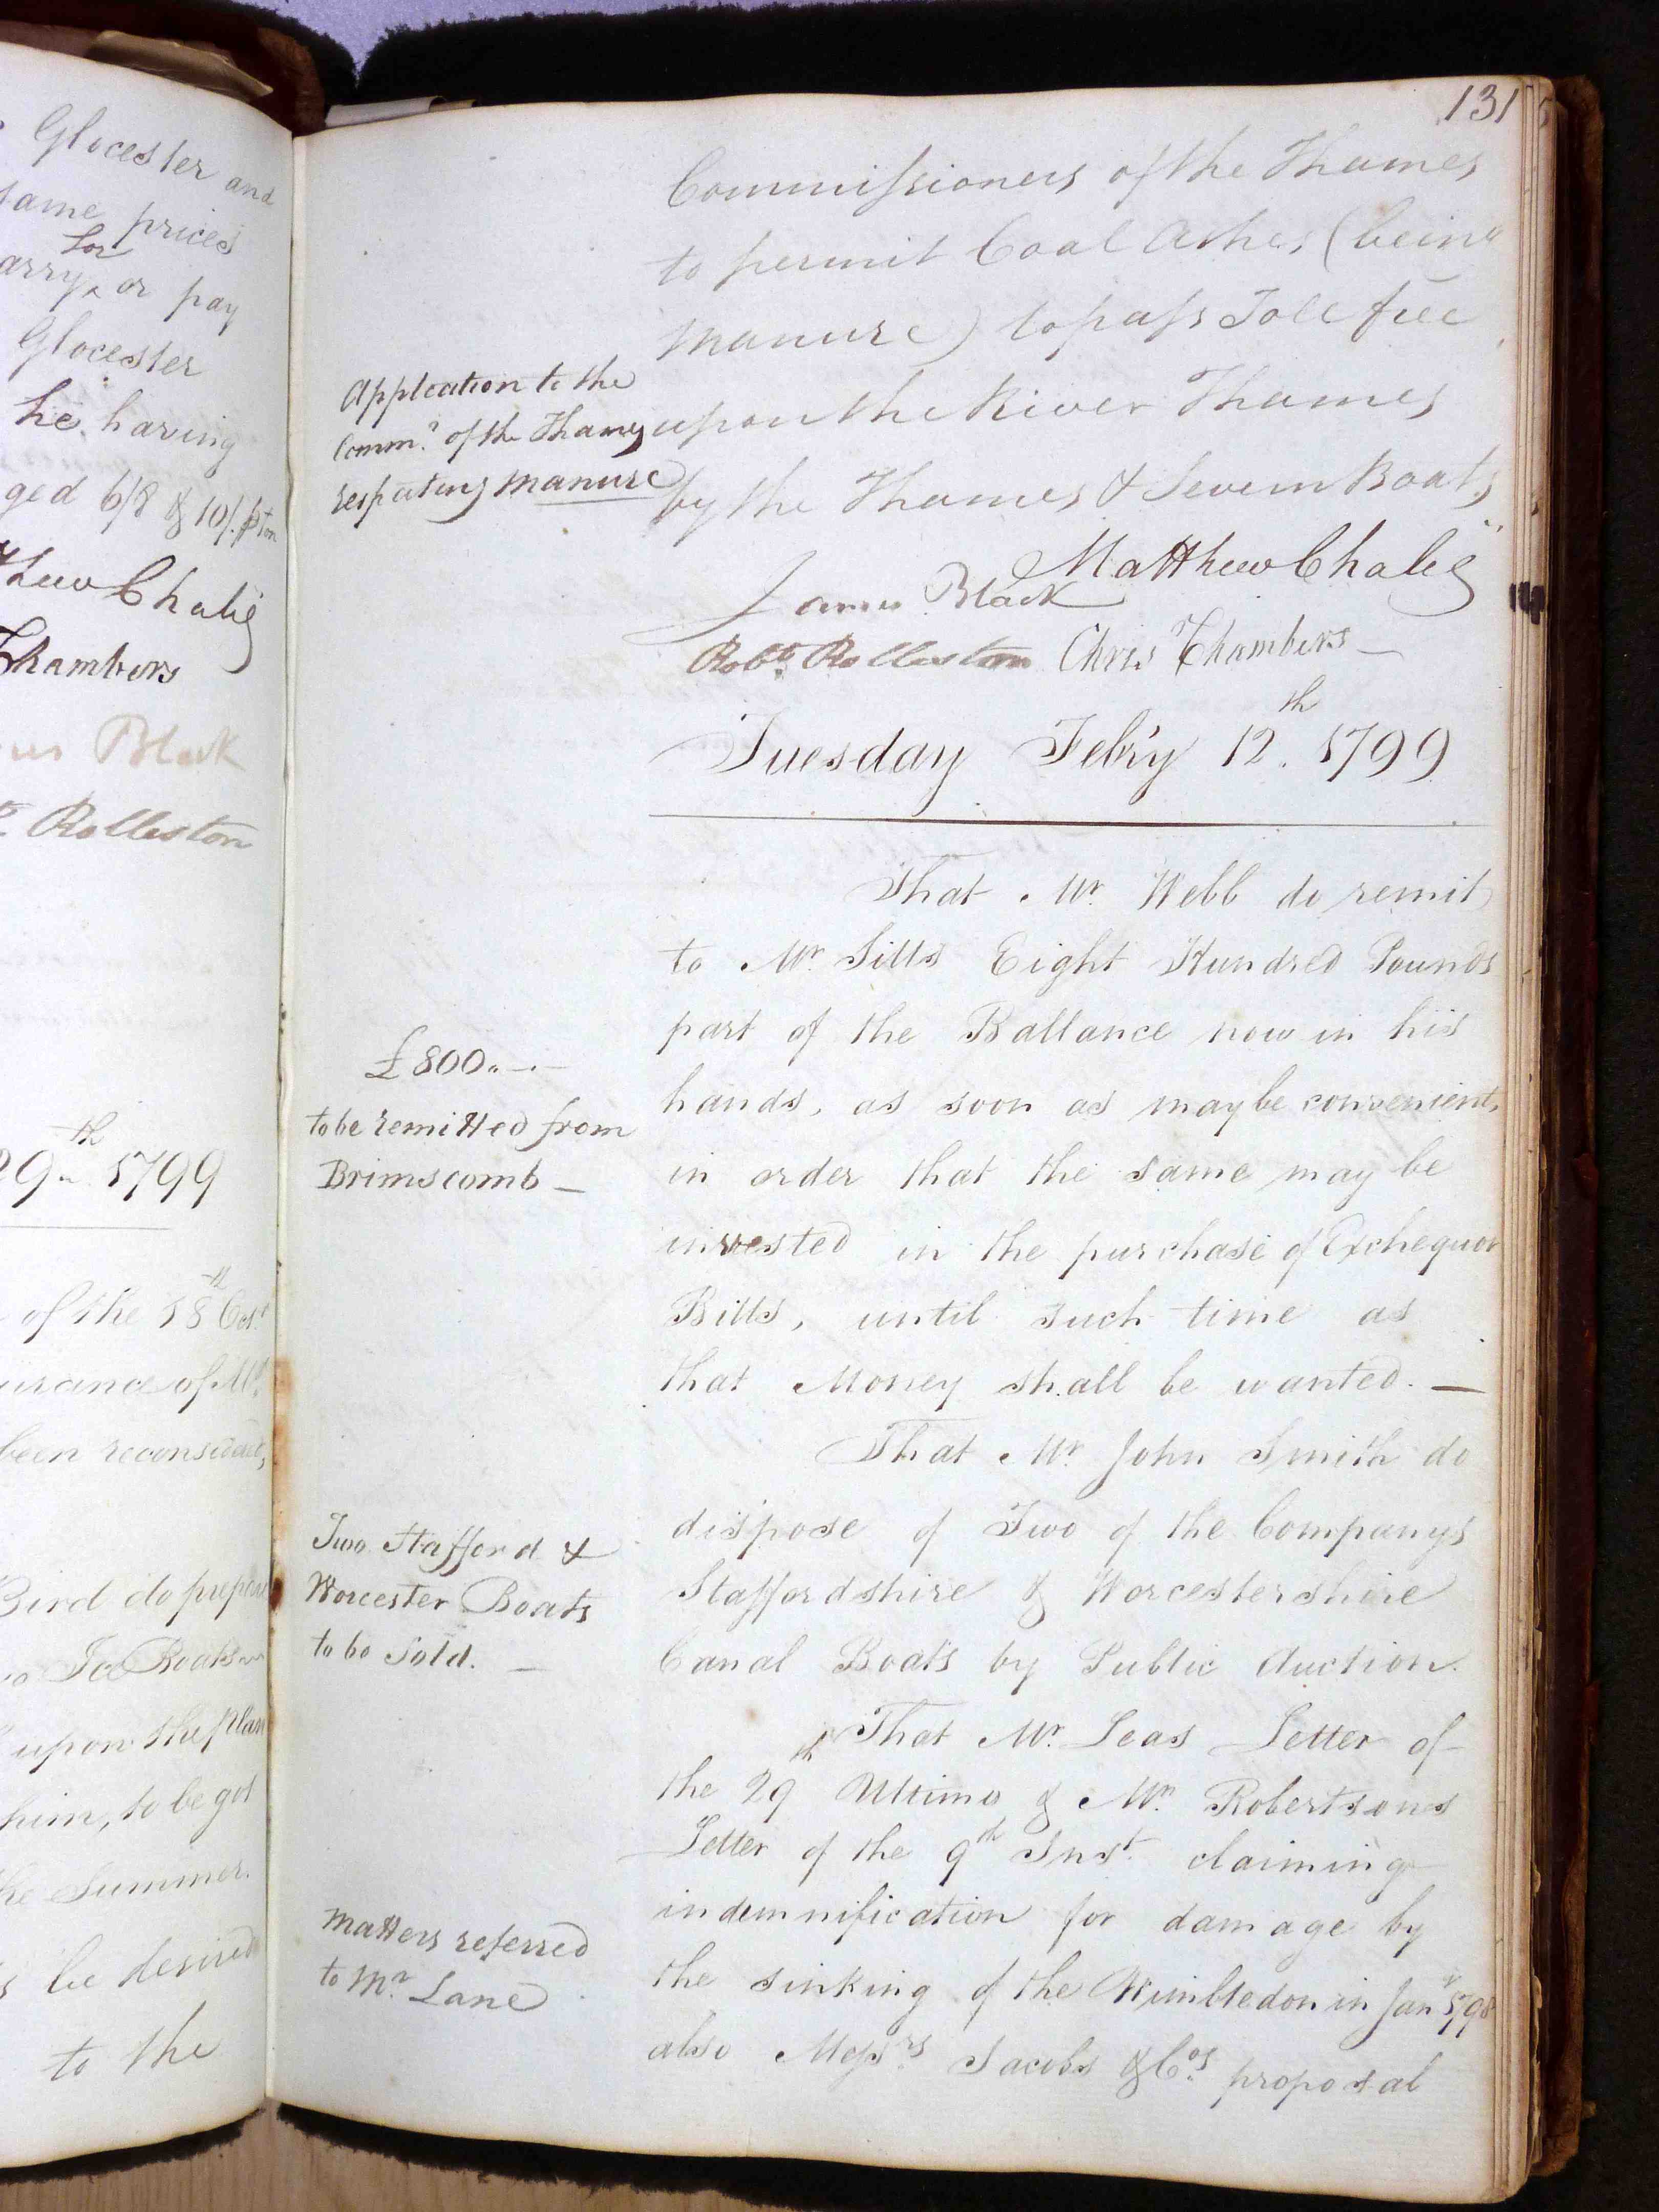 Glocester and
same prices
for
or pay
Glocester
he having
6/8 & 10/. p ton
Chalié
Chambers
Black
Rolleston
29th 1799
of the 18th Oct
of Mr
been reconsidered,
Bird do prepare
Ice Boats
upon the plan
him, to be got
the Summer.
be desired
to the
131
Commissioners of the Thames
to permit Coal Ashes (being
manure) to pass Toll free
Application to the
Commrs of the Thames
respecting manure
upon the River Thames
by the Thames & Severn Boats
Matthew Chalié
James Black
Robt Rolleston Chrisr Chambers
Tuesday Feb'ry 12th 1799
That Mr Webb do remit
to Mr Sills Eight Hundred Pounds
part of the Ballance now in his
hands, as soon as may be convenient,
in order that the same may be
invested in the purchase of Exchequer
Bills, until such time as
that Money shall be wanted. —
£800 " — " —
to be remitted from
Brimscomb —
That Mr John Smith do
dispose of Two of the Companys
Staffordshire & Worcestershire
Canal Boats by Public Auction.
Two Stafford &
Worcester Boats
to be Sold. —
That Mr Leas Letter of
the 29th Ultimo & Mr Robertsons
Letter of the 9th Inst claiming
indemnification for damage by
the sinking of the Wimbledon in Jany 1798
also Messrs Jacobs & Cos proposal
Matters referred
to Mr Lane